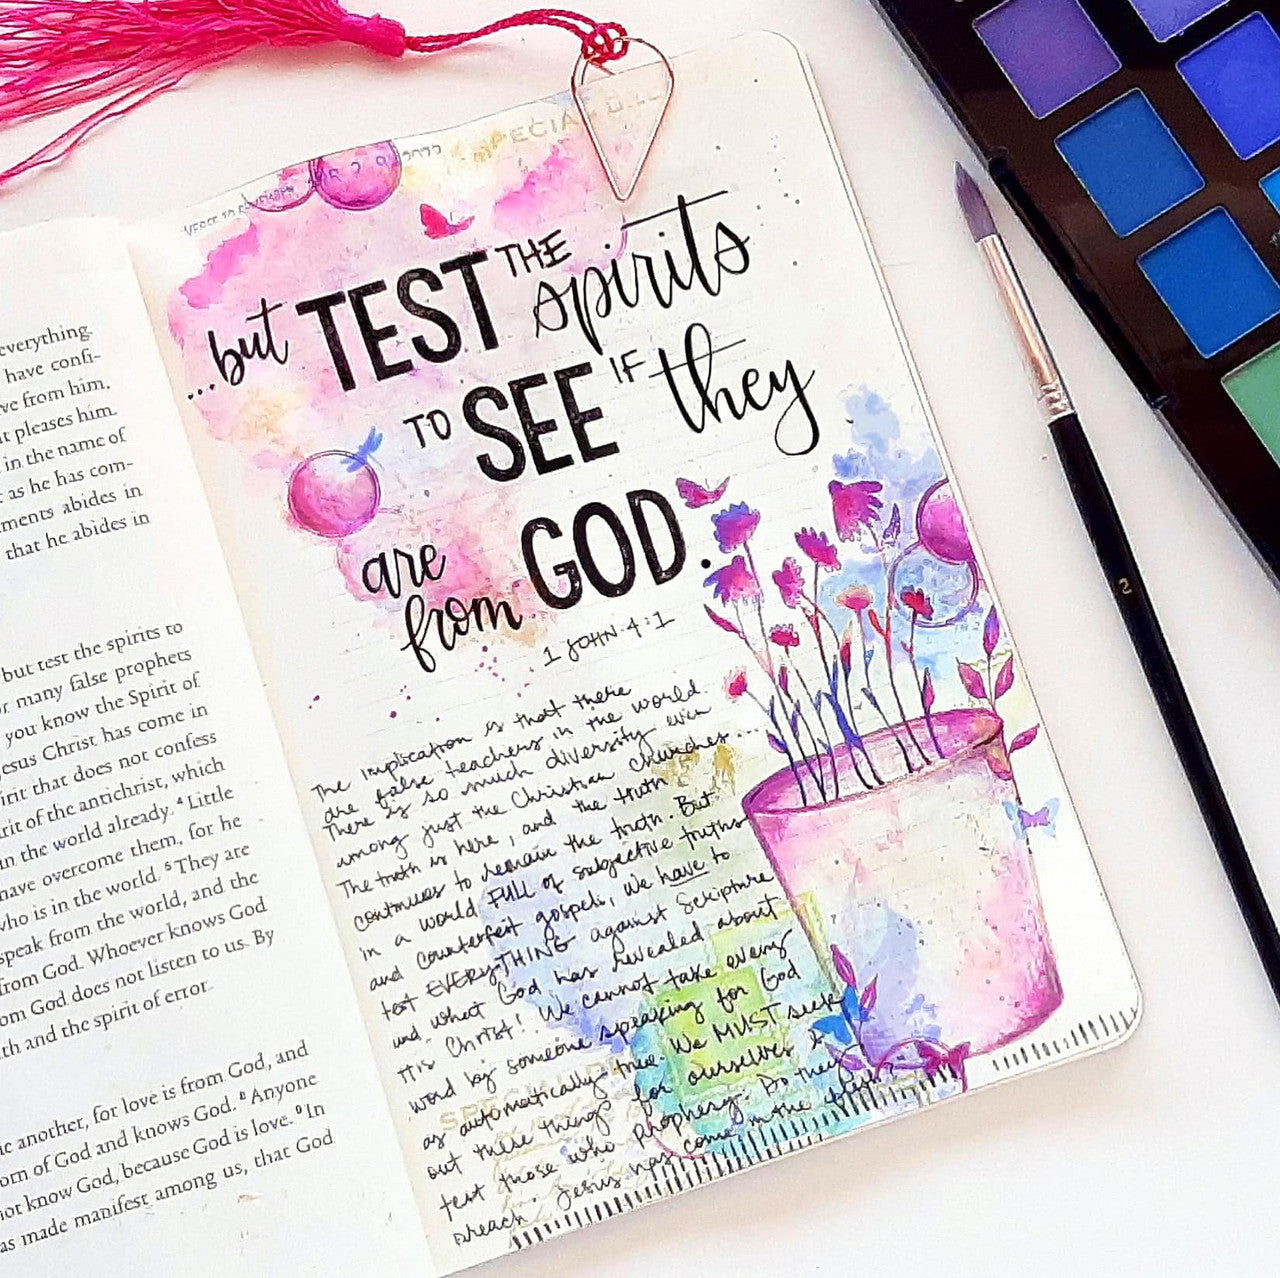 everything.
have confi-
ve from him,
it pleases him.
in the name of
as he has com-
ments abides in
that he abides in
but test the spirits to
r many false prophets
you know the Spirit of
esus Christ has come in
irit that does not confess
rit of the antichrist, which
in the world already. 4 Little
have overcome them, for he
who is in the world. 5 They are
speak from the world, and the
from God. Whoever knows God
om God does not listen to us. By
th and the spirit of error.
another, for love is from God, and
orn of God and knows God. 8 Anyone
not know God, because God is love. 9 In
as made manifest among us, that God
VERSE TO REMEMBER
SPECIAL
...but TEST THE spirits
TO SEE IF they
are GOD.
from
1 JOHN 4:1
The implication is that there
are false teachers in the world.
There is so much diversity even
among just the Christian churches...
The truth is here, and the truth
continues to remain the truth. But
in a world FULL of subjective truths
and counterfeit gospels, we have to
test EVERYTHING against Scripture
and what God has revealed about
Christ! We cannot take every
word by someone speaking for God
as automatically true. We MUST seek
out these things for ourselves &
test those who prophecy. Do they
preach Jesus has come in the flesh?
2